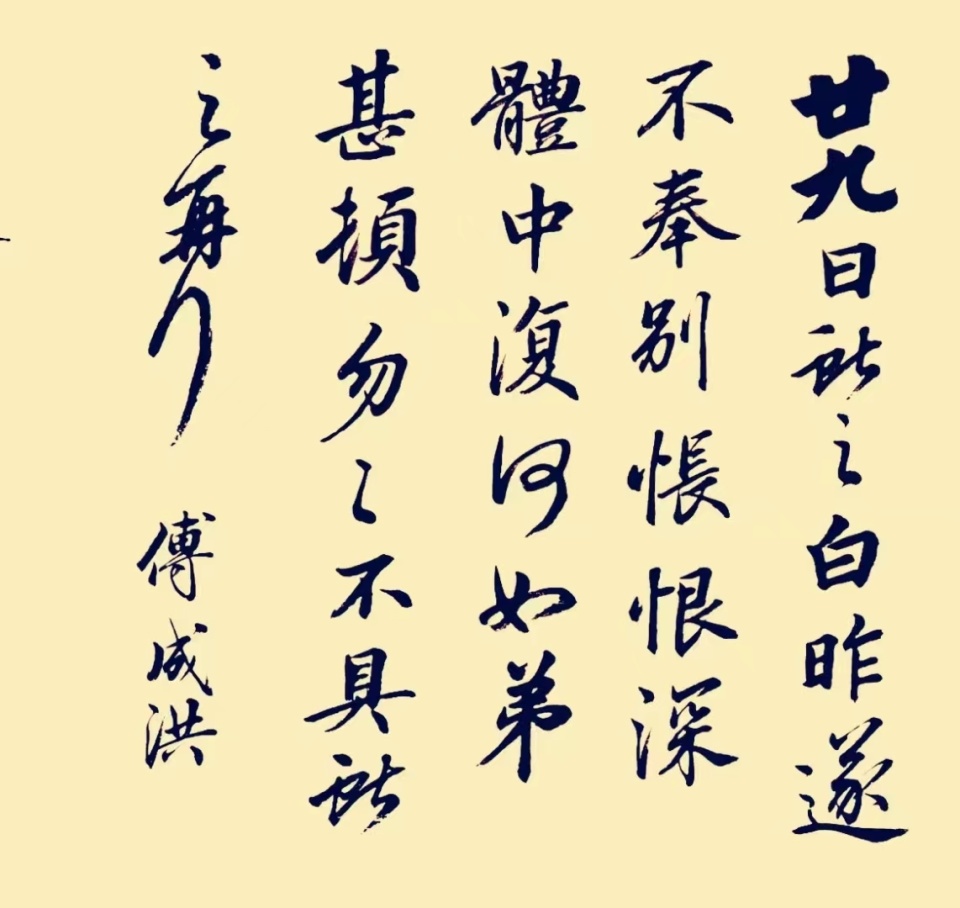 廿九日獻之白昨遂
不奉別悵恨深
體中復何如弟
甚頓勿々不具獻
之再行
傅成洪